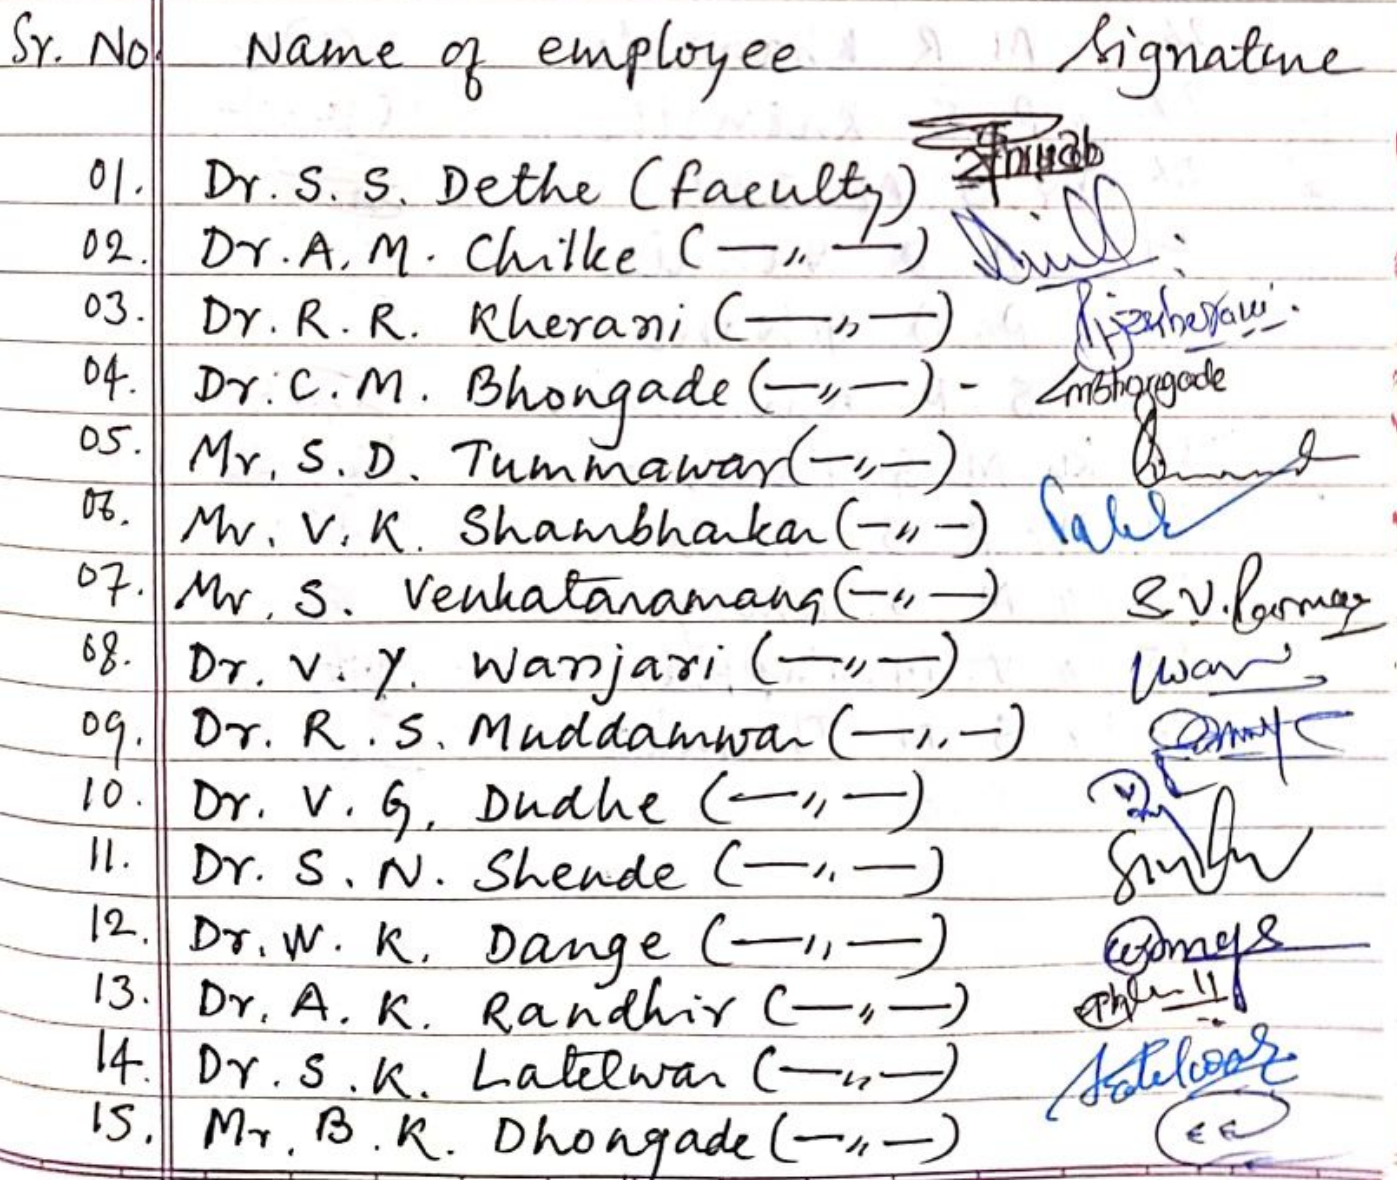 Sr. No. Name of employee Signature
01. Dr. S. S. Dethe (Faculty)
02. Dr. A. M. Chilke (—〃—)
03. Dr. R. R. Kherani (—〃—)
04. Dr. C. M. Bhongade (—〃—) - CMBhongade
05. Mr. S. D. Tummawar (—〃—)
06. Mr. V. K. Shambharkar (—〃—)
07. Mr. S. Venkataramana (—〃—)
08. Dr. V. Y. Wanjari (—〃—)
09. Dr. R. S. Muddamwar (—〃—)
10. Dr. V. G. Dudhe (—〃—)
11. Dr. S. N. Shende (—〃—)
12. Dr. W. K. Dange (—〃—)
13. Dr. A. K. Randhir (—〃—)
14. Dr. S. K. Latelwar (—〃—)
15. Mr. B. K. Dhongade (—〃—)